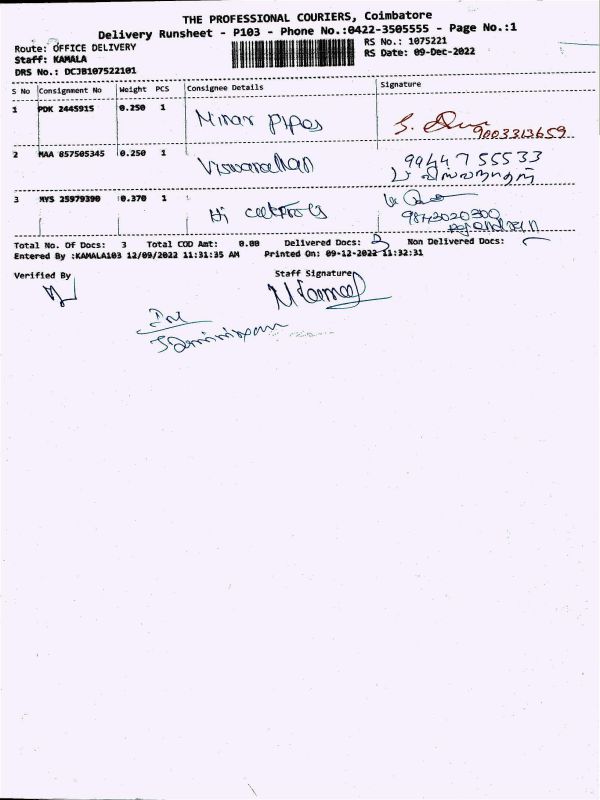 THE PROFESSIONAL COURIERS, Coimbatore
Delivery Runsheet - P103 - Phone No.:0422-3505555 - Page No.:1
Route: OFFICE DELIVERY RS No.: 1075221
Staff: KAMALA RS Date: 09-Dec-2022
DRS No.: DCJB107522101
S No Consignment No Weight PCS Consignee Details Signature
1 PDK 2445915 0.250 1 Minar pipes
9003313659
2 MAA 857505345 0.250 1 Viswanathan 99447 55533
3 MYS 25979390 0.370 1 Hi
Total No. Of Docs: 3 Total COD Amt: 0.00 Delivered Docs: 3 Non Delivered Docs:
Entered By :KAMALA103 12/09/2022 11:31:35 AM Printed On: 09-12-2022 11:32:31
Verified By Staff Signature